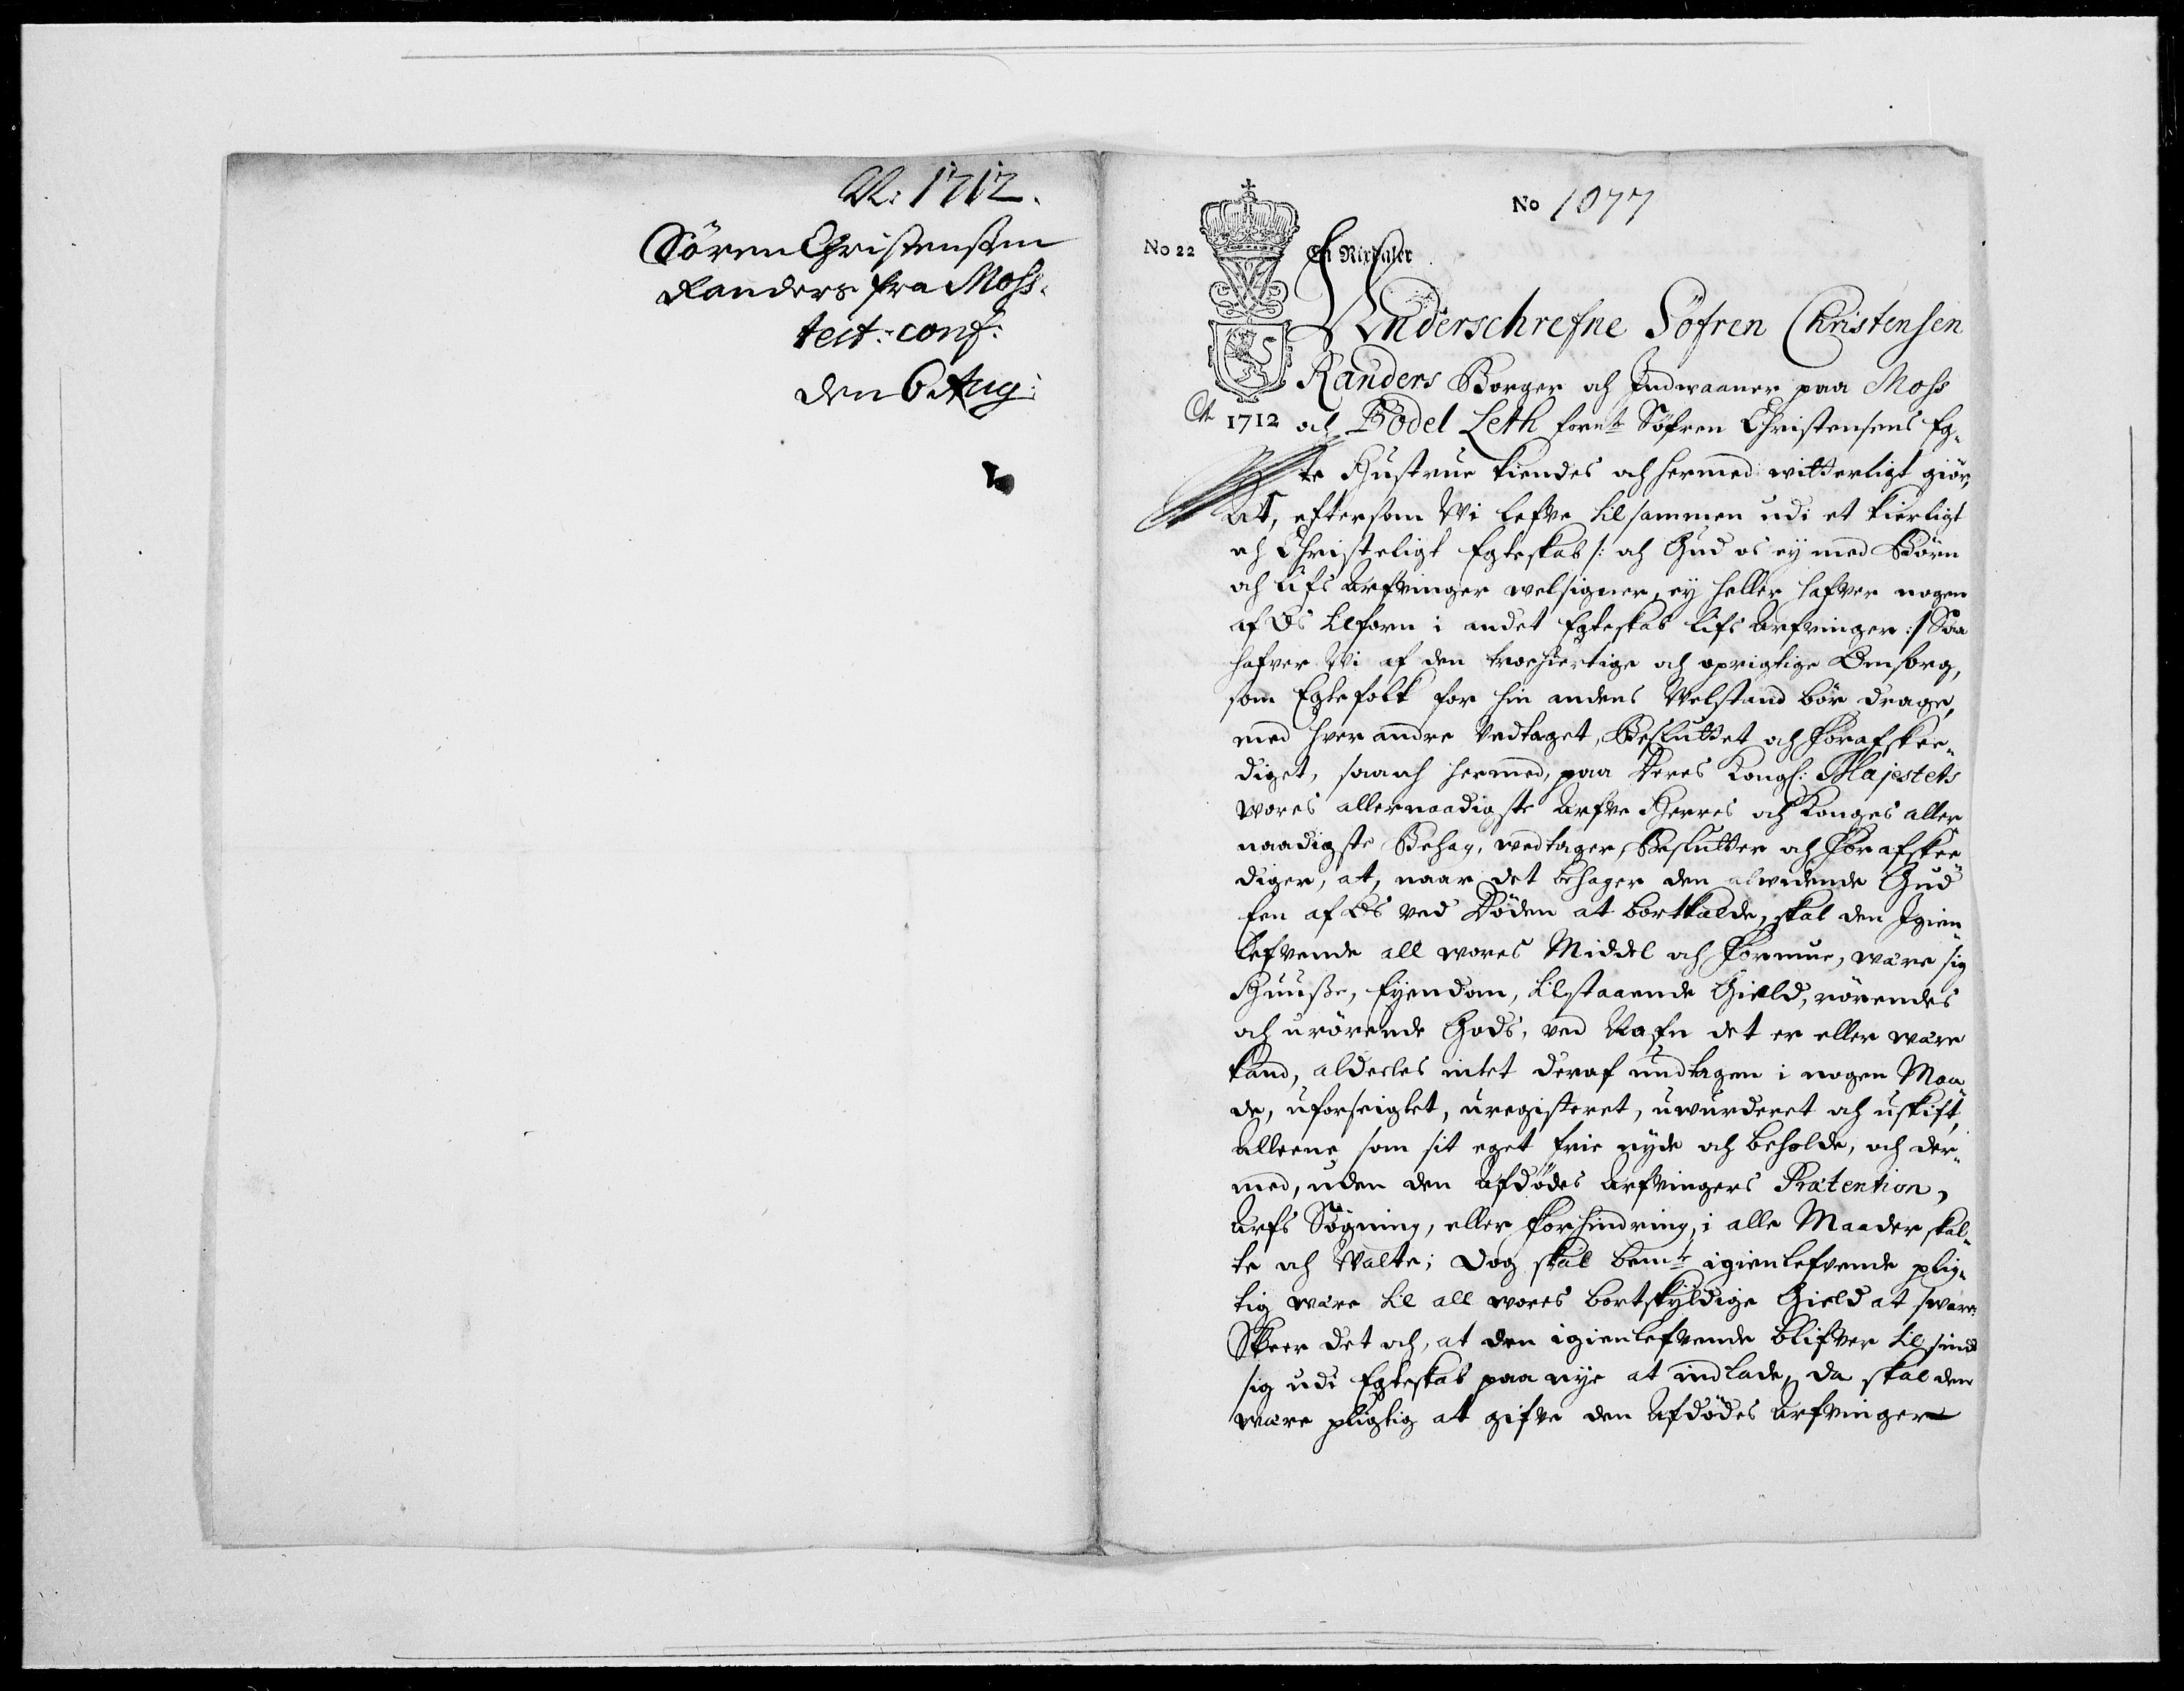 A: 1712.
Sören Christensen
Randers fra Moss.
test: conf:
den 6 Aug:
No 1077
No 22
En Rixdaler
Underschrefne Söfren Christensen
Randers Borger och Indwaaner paa Moss
Ao 1712 och Bodel Leth forn.te Söfren Christensens Eg„
te Hustrue kiendes och hermed witterligt giör,
At, eftersom Wi lefve tilsammen udi et kierligt
och Christeligt Egteskab /: och Gud os ey med Börn
och Lifs Arfvinger welsigner, ey heller hafver nogen
af Os tilforn i andet Egteskab Lifs Arfvinger :/ Saa
hafver Wi af den troehiertige och oprigtige Omsorg,
som Egtefolk for hin andens Velstand bör drage,
med hver andre Vedtaget, Besluttet och forafskee„
diget, saa och hermed, paa Deres Kongl: Majestets
vores allernaadigste Arfve Herres och Konges aller
naadigste Behag, vedtager, Beslutter och forafskee„
diger, at, naar det behager den alvidende Gud
Een af Os ved Döden at bortkalde, skal den Igien„
lefvende all vores Middel och formue, være sig
Huuse, Eyendom, tilstaaende Gield, rörendes
och urörende Gods, ved Nafn det er eller være
kand, aldeeles intet deraf undtagen i nogen Maa„
de, uforseiglet, uregisteret, uvurderet och uskift
alleene, som sit eget frie nyde och beholde, och der„
med, uden den Afdödes Arfvingers Prætention,
Arfs Sögning, eller forhindring, i alle Maader skal„
te och Valte; Dog skal bem.te igienlefvende plig„
tig være til all vores bortskyldige Gield at svare.
Skeer det och, at den igienlefvende blifver tilsinds
sig udi Egteskab paa nye at indlade, da skal den
være pligtig at gifve den Afdödes Arfvinger